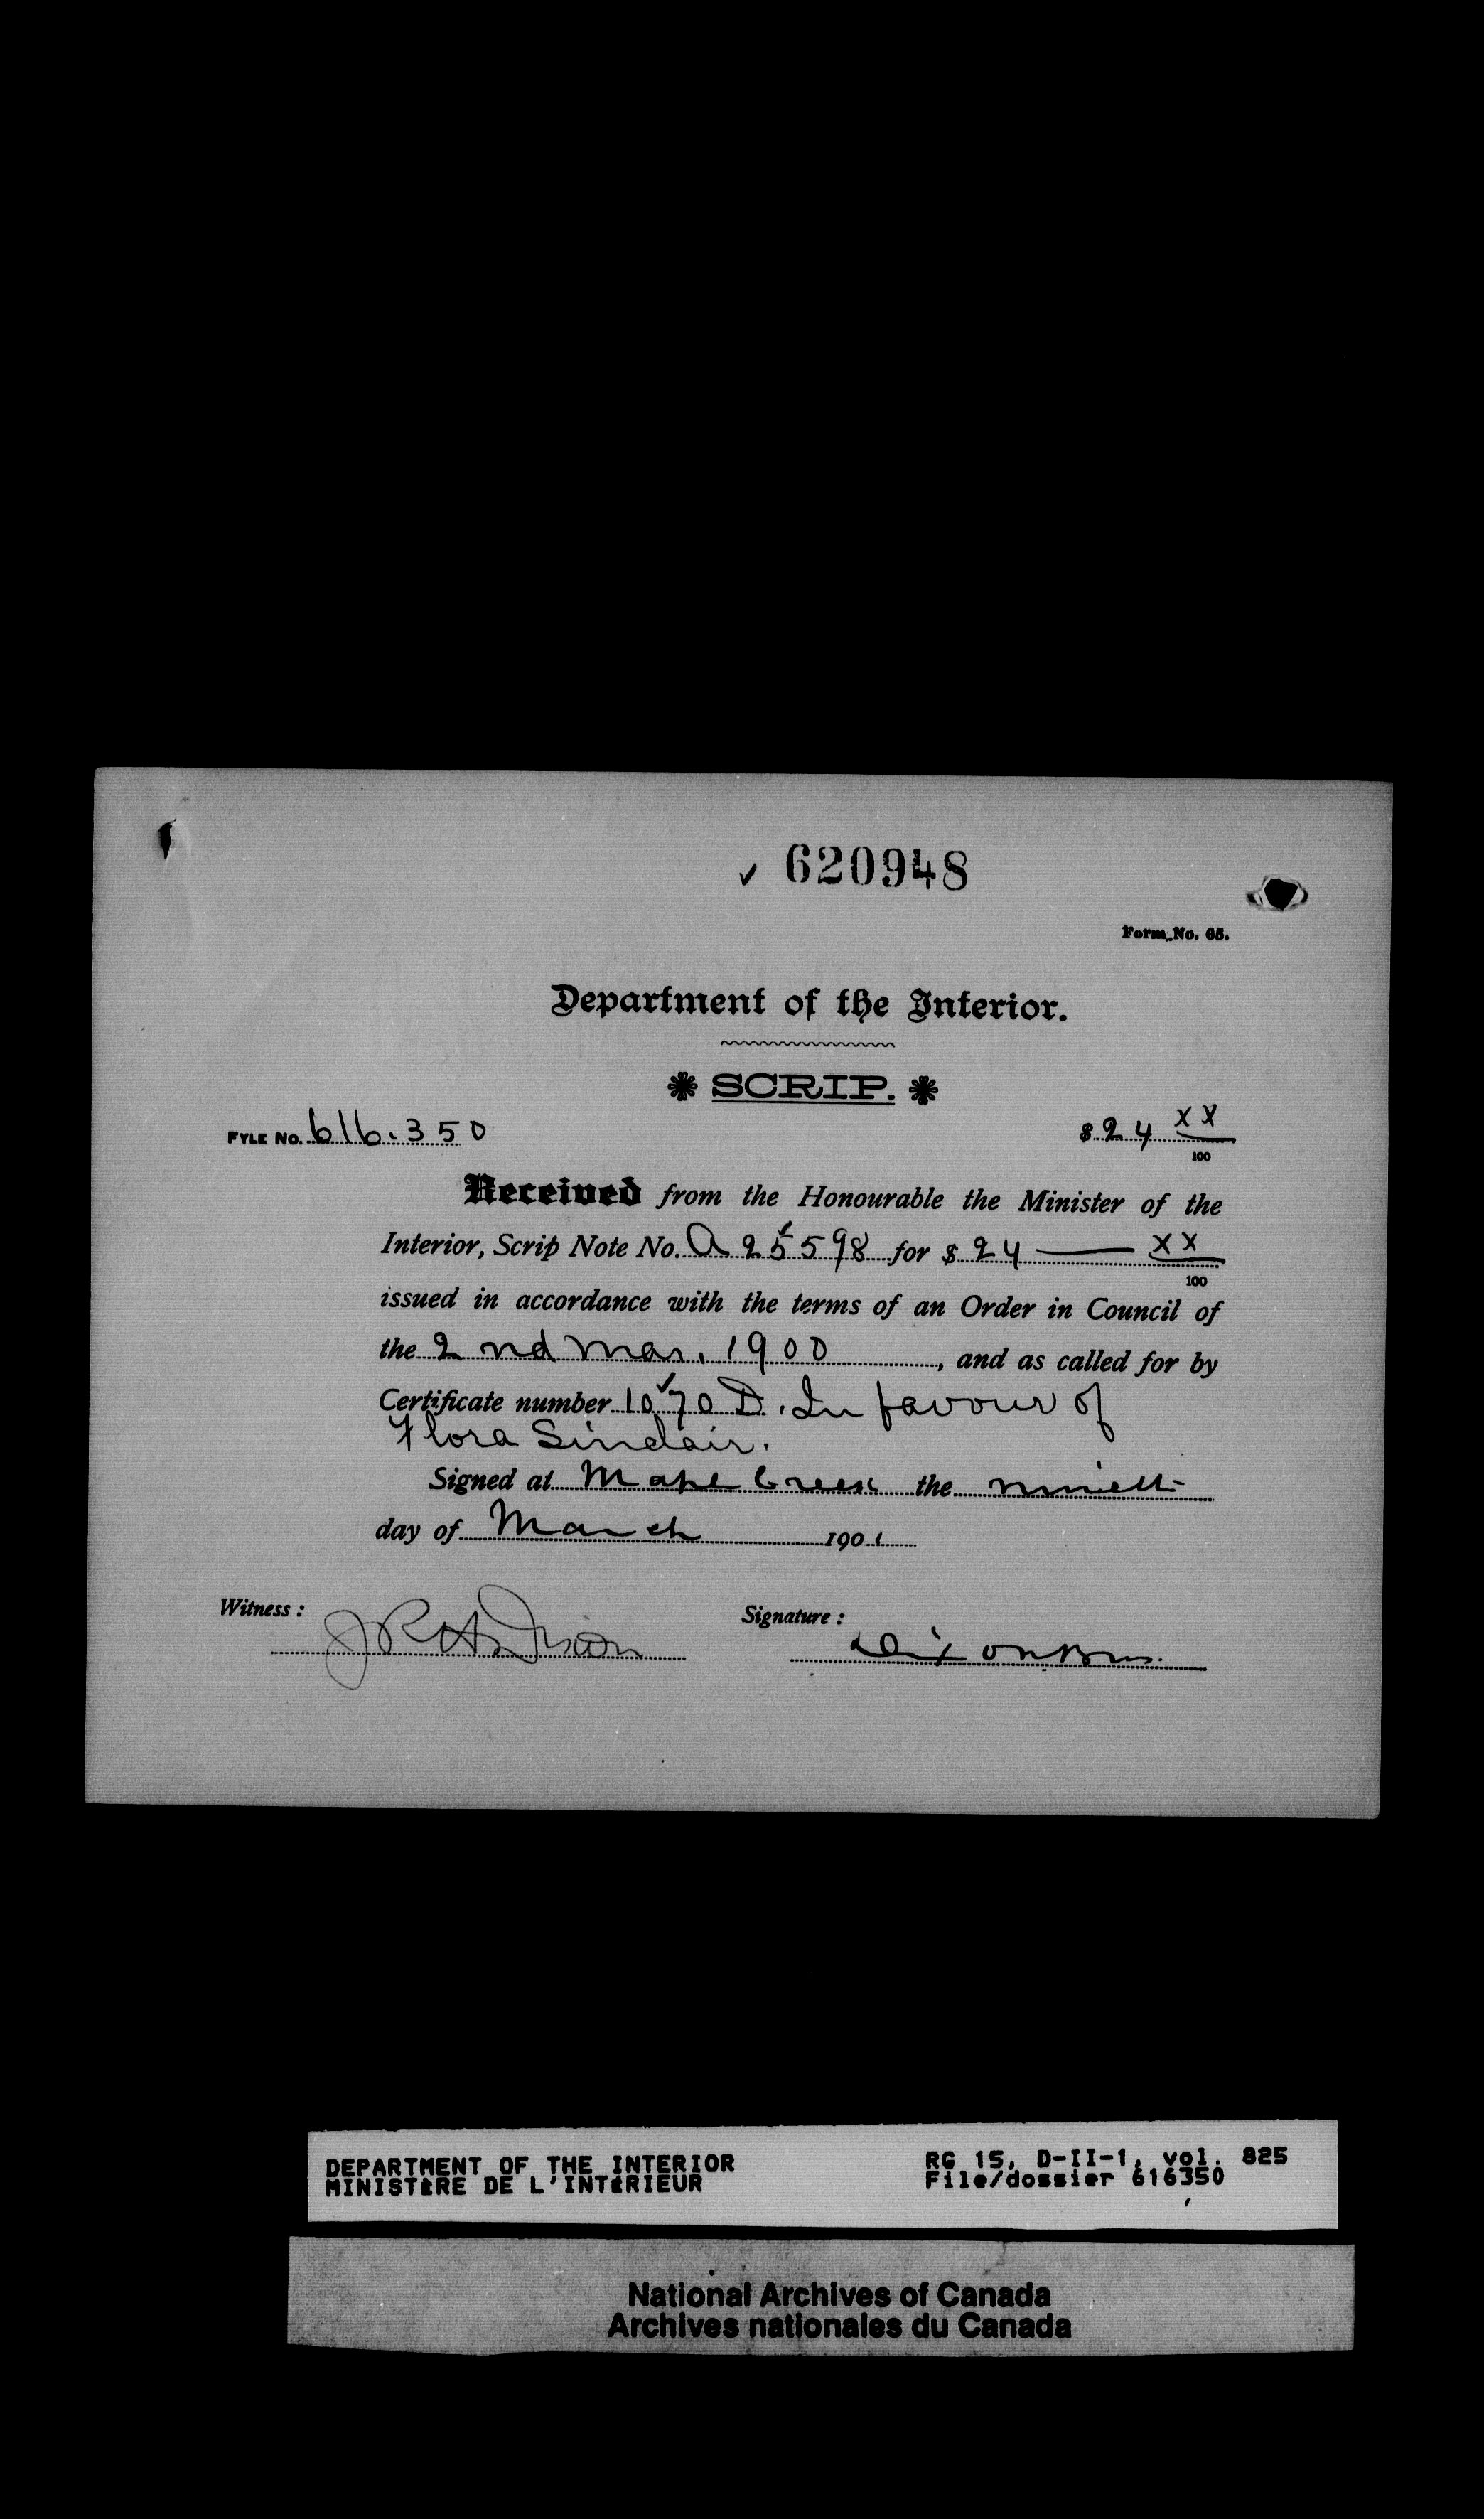 ✓ 620948
Form No. 65.
Department of the Interior.
SCRIP.
FYLE No. 616.350 $ 24 XX/100
Received from the Honourable the Minister of the
Interior, Scrip Note No. A 25598 for $ 24 — XX/100
issued in accordance with the terms of an Order in Council of
the 2nd Mar. 1900, and as called for by
Certificate number 1070 D. In favour of
Flora Sinclair.
Signed at Maple Creek the
day of March 1901
Witness : Signature :
Dixon Bros.
DEPARTMENT OF THE INTERIOR RG 15, D-II-1, vol. 825
MINISTÈRE DE L'INTÉRIEUR File/dossier 616350
National Archives of Canada
Archives nationales du Canada